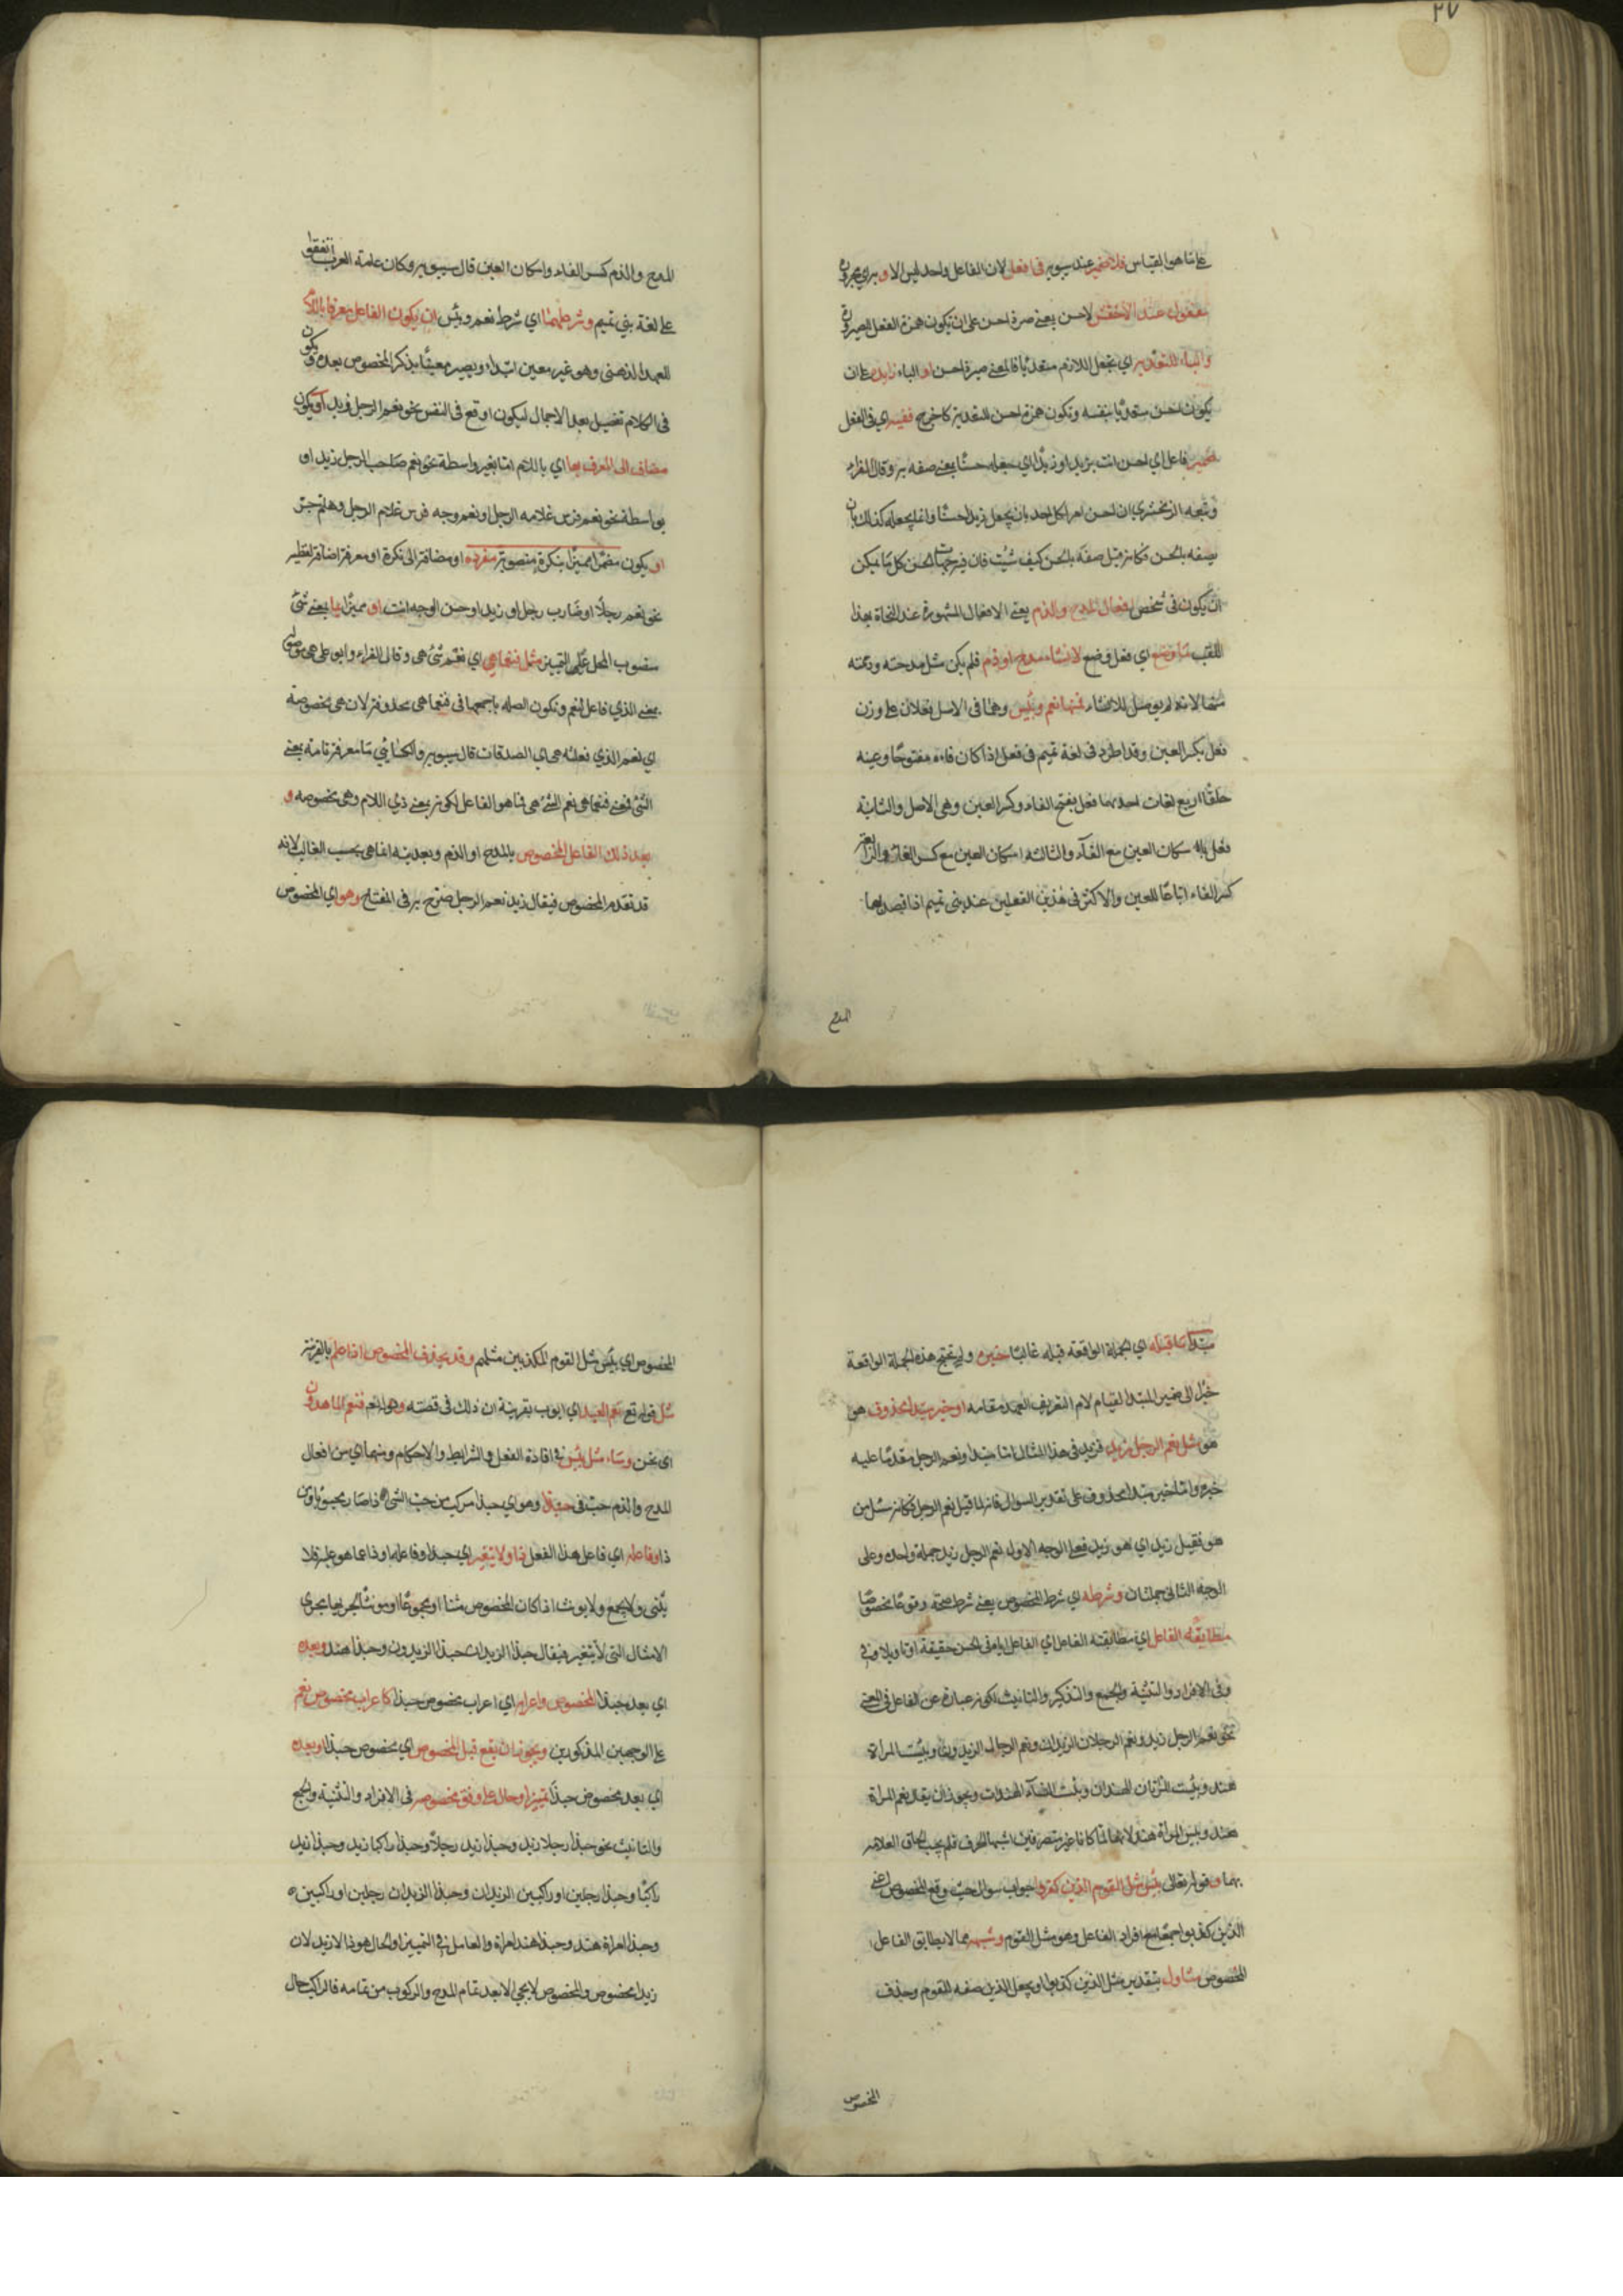 ٢٧
على ما هو القياس فلا ضمير عند سيبويه في افعل لان الفاعل واحد ليس الا و به اي مجرور
مفعول عند الاخفش لاحسن يعني صيرة احسن على ان يكون همزة الفعل للصيرورة
والباء للتعدية اي تجعل اللازم متعديا فالمعنى صيرة احسن او الباء زايدة على ان
يكون احسن متعديا بنفسه وتكون همزة احسن للتعدية كاخرج ففيه اي في الفعل
ضمير فاعل اي احسن انت بزيد او زيدا اي جعله حسنا بمعنى صفه به وقال الفراء
وتبعه الزمخشري ان احسن امر لكل احد بان يجعل زيدا حسنا وانما يجعله كذلك بان
يصفه بالحسن فكانه قيل صفه بالحسن كيف شئت فان فيه جهات الحسن كل ما يمكن
ان يكون في شخص افعال المدح والذم يعني الافعال المشهورة عند النحاة بهذا
اللقب ما وضع اي فعل وضع لانشاء مدح او ذم فلم يكن مثل مدحته وذمته
منهما لانه لم يوضع للانشاء فمنها نعم وبئس وهما في الاصل فعلان على وزن
فعل بكسر العين وقد اطرد في لغة تميم في فعل اذا كان فاءه مفتوحا وعينه
حلقيا اربع لغات احديهما فعل بفتح الفاء وكسر العين وهي الاصل والثانية
فعل باسكان العين مع الفاء والثالثة اسكان العين مع كسر الفاء والرابعة
كسر الفاء اتباعا للعين والاكثر في هذين الفعلين عند بني تميم اذا قصد بهما
المدح
المدح والذم كسر الفاء واسكان العين قال سيبويه وكان عامة العرب اتفقوا
على لغة بني تميم وشرطهما اي شرط نعم وبئس ان يكون الفاعل معرفا باللام
للعهد الذهني وهو غير معين ابتداء ويصير معينا بذكر المخصوص بعده ويكون
في الكلام تفصيل بعد الاجمال ليكون اوقع في النفس نحو نعم الرجل زيد او يكون
مضاف الى المعرف بها اي باللام اما بغير واسطة نحو نعم صاحب الرجل زيد او
بواسطة نحو نعم فرس غلامه الرجل او نعم وجه فرس غلام الرجل وهلم جرا
او يكون مضمرا مميزا بنكرة منصوبة مفردة او مضافة الى نكرة او معرفة اضافة لفظية
نحو نعم رجلا او ضارب رجل او زيد او حسن الوجه انت او مميزا بما بمعنى شئ
منصوب المحل على التمييز مثل فنعما هي اي نعم شئ هي وقال الفراء وابو علي هي موصولة
بمعنى الذي فاعل لنعم وتكون الصلة باجمعها في فنعما هي محذوفة لان هي مخصوصة
اي نعم الذي فعله هي اي الصدقات قال سيبويه والكسائي ما معرفة تامة بمعنى
الشئ فمعنى فنعما هي نعم الشئ هي فما هو الفاعل لكونه بمعنى ذي اللام وهي مخصوصة و
بعد ذلك الفاعل المخصوص بالمدح او الذم وبعديته انما هي بحسب الغالب لانه
قد تقدم المخصوص فيقال زيد نعم الرجل صرح به في المفتاح وهو اي المخصوص
مبتدا ما قبله اي الجملة الواقعة قبله غالبا خبره ولم تحتج هذه الجملة الواقعة
خبرا الى ضمير المبتدا لقيام لام التعريف العهد مقامه او خبر مبتدا محذوف هو
هو مثل نعم الرجل زيد فزيد في هذا المثال اما مبتدا ونعم الرجل مقدما عليه
خبره واما خبر مبتدا محذوف على تقدير السؤال فانه لما قيل نعم الرجل فكانه سئل من
هو فقيل زيد اي هو زيد فعلى الوجه الاول نعم الرجل زيد جملة واحدة وعلى
الوجه الثاني جملتان وشرطه اي شرط المخصوص يعني شرط صحة وقوعه مخصوصا
مطابقة الفاعل اي مطابقته الفاعل اي الفاعل اياه في الجنس حقيقة او تاويلا وفي
وفي الافراد والتثنية والجمع والتذكير والتانيث لكونه عبارة عن الفاعل في المعنى
نحو نعم الرجل زيد ونعم الرجلان الزيدان ونعم الرجال الزيدون وبئست المراة
هند وبئست المرأتان الهندان وبئست النساء الهندات ويجوز ان يقال نعم المراة
هند وبئس المراة هند لانهما لما كانا غير متصرفين اشبها الحرف فلم يجب الحاق العلامة
بهما وقوله تعالى بئس مثل القوم الذين كذبوا جواب سوال حيث وقع المخصوص اعني
الذين كذبوا جمعا مع افراد الفاعل وهو مثل القوم وشبهه مما لا يطابق الفاعل
المخصوص متأول بتقدير مثل الذين كذبوا او يجعل الذين صفة للقوم وحذف
المخصوص
المخصوص اي بئس مثل القوم المكذبين مثلهم وقد يحذف المخصوص اذا علم بالقرينة
مثل قوله تع نعم العبد اي ايوب بقرينة ان ذلك في قصته وقوله نعم فنعم الماهدون
اي نحن وساء مثل بئس في افادة الفعل والشرايط والاحكام ومنها اي من افعال
المدح والذم حب في حبذا وهو اي حبذا مركب من حب الشئ اذا صار محبوبا ومن
ذا وفاعله اي فاعل هذا الفعل ذا ولا يتغير اي حبذا وفاعله او ذا عما هو عليه فلا
يثنى ولا يجمع ولا يونث اذا كان المخصوص مثنا او مجموعا او مونثا لجريها مجرى
الامثال التي لا يتغير فيقال حبذا الزيدان حبذا الزيدون وحبذا هند وبعده
اي بعد حبذا المخصوص واعرابه اي اعراب مخصوص حبذا كاعراب مخصوص نعم
على الوجهين المذكورين ويجوز ان يقع قبل المخصوص اي مخصوص حبذا وبعده
اي بعد مخصوص حبذا تمييز او حال على وفق مخصوصه في الافراد والتثنية والجمع
والتانيث نحو حبذا رجلا زيد وحبذا زيد رجلا وحبذا راكبا زيد وحبذا زيد
راكبا وحبذا رجلين او راكبين الزيدان وحبذا الزيدان رجلين او راكبين
وحبذا امراة هند وحبذا هند امراة والعامل في التمييز او الحال هو ذا لا زيد لان
زيدا مخصوص والمخصوص لا يجئ الا بعد تمام المدح والركوب من تمامه فالراكب حال